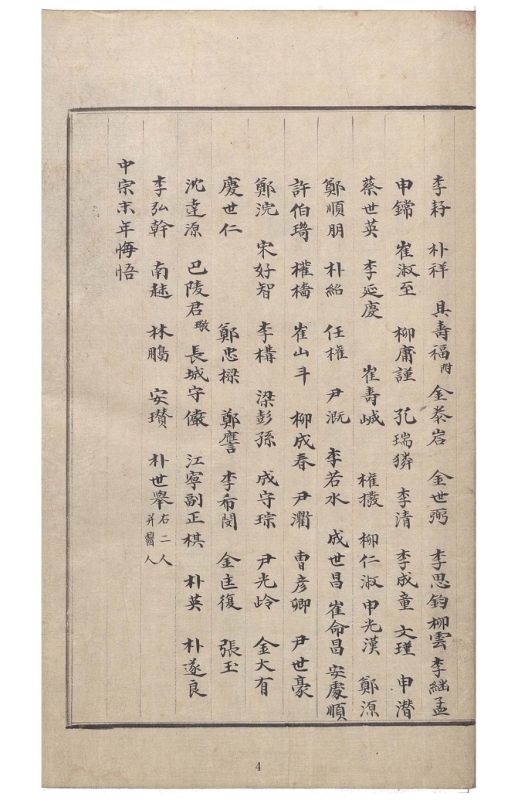 李耔 朴祥 具壽福附 金泰岩 金世弼 李思鈞 柳雲 李繼孟
申鏛 崔淑至 柳庸謹 孔瑞獜 李清 李成童 文瑾 申潛
蔡世英 李延慶 崔壽峸 權撥 柳仁淑 申光漢 鄭源
鄭順朋 朴紹 任權 尹漑 李若水 成世昌 崔命昌 安處順
許伯琦 權橋 崔山斗 柳成春 尹衢 曹彦卿 尹世豪
鄭浣 宋好智 李構 梁彭孫 成守琮 尹光岭 金大有
慶世仁 鄭忠樑 鄭譍 李希閔 金匡復 張玉
沈達源 巴陵君璥 長城守儼 江寧副正祺 朴英 朴遂良
李弘幹 南趎 林鵬 安瓚 朴世舉右二人
并醫人
中宗末年悔悟
4